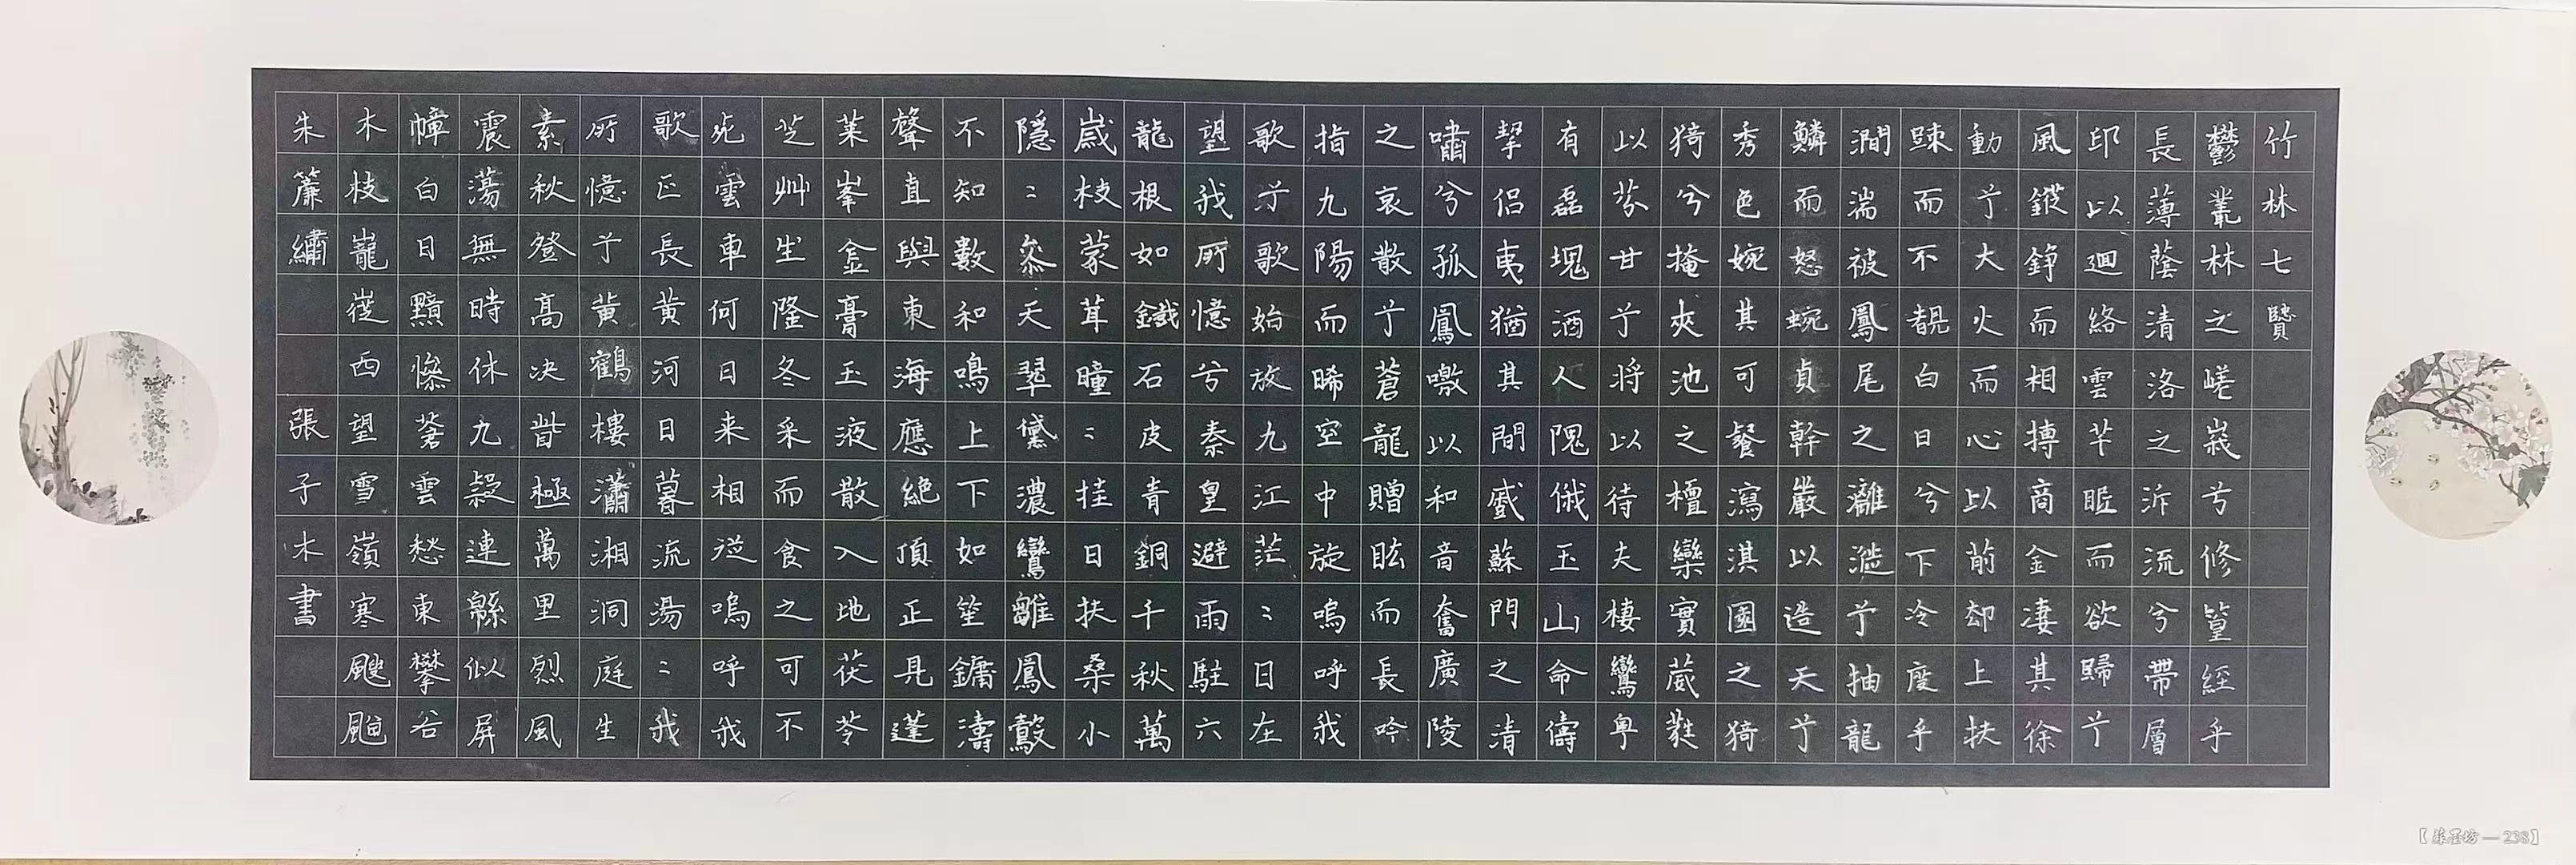 竹林七賢
鬱叢林之嵯峩兮修篁經乎
長薄蔭清洛之泝流兮帶層
邙以迴絡雲芊眠而欲歸兮
風鏦錚而相搏商金凄其徐
動兮大火而心以前却上扶
踈而不覩白日兮下冷度乎
澗湍被鳳尾之灕漇兮抽龍
鱗而怒蜿貞幹嚴以造天兮
秀色婉其可餐瀉淇園之猗
猗兮掩夾池之檀欒實葳蕤
以芬甘兮将以待夫棲鸞粤
有磊塊酒人隗俄玉山命儔
挈侣夷猶其間盛蘇門之清
嘯兮孤鳳噭以和音奮廣陵
之哀散兮蒼龍贈眩而長吟
指九陽而晞空中旋嗚呼我
歌兮歌始放九江茫〻日在
望我所憶兮秦皇避雨駐六
龍根如鐵石皮青銅千秋萬
歲枝蒙茸曈〻挂日扶桑小
隱〻叅天翠黛濃鸞雛鳳鷇
不知數和鳴上下如笙鏞濤
聲直與東海應絶頂正見蓬
萊峯金膏玉液散入地茯苓
芝艸生隆冬采而食之可不
死雲車何日来相從嗚呼我
歌正長黄河日暮流湯〻我
所憶兮黄鶴樓瀟湘洞庭生
素秋登高决眥極萬里烈風
震蕩無時休九疑連緜似屏
幛白日黯慘蒼雲愁東攀谷
木枝巃嵸西望雪嶺寒颼颼
朱簾繡
張子木書
【蘇墨坊—238】